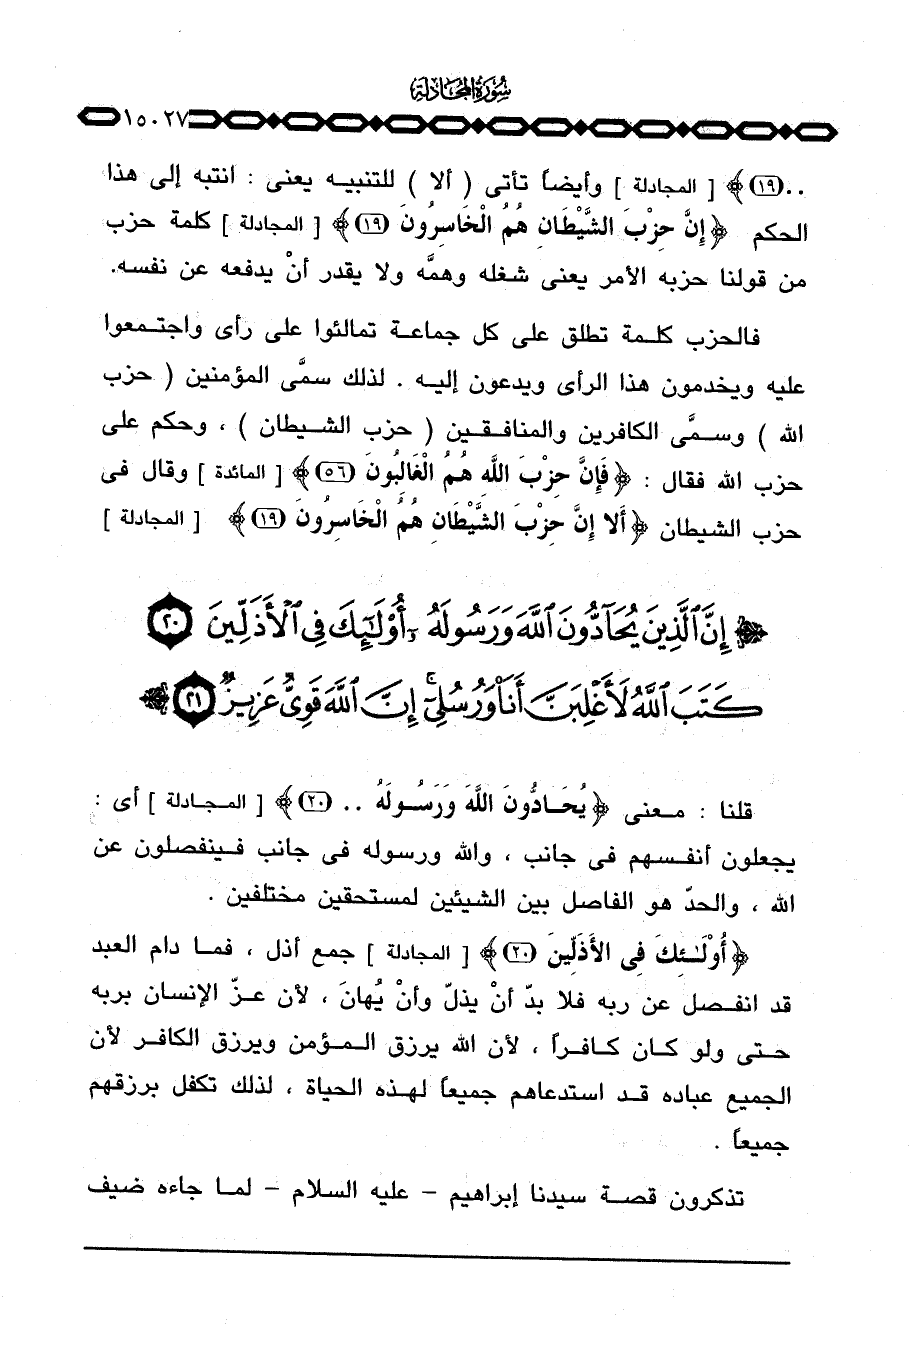 سُورَةُ المُجَادلَة
١٥٠٢٧
.. (١٩)﴾ [ المجادلة ] وأيضاً تأتى ( ألا ) للتنبيه يعنى : انتبه إلى هذا
الحكم ﴿إِنَّ حِزْبَ الشَّيْطَانِ هُمُ الْخَاسِرُونَ (١٩)﴾ [ المجادلة ] كلمة حزب
من قولنا حزبه الأمر يعنى شغله وهمَّه ولا يقدر أنْ يدفعه عن نفسه.
فالحزب كلمة تطلق على كل جماعة تمالئوا على رأى واجتمعوا
عليه ويخدمون هذا الرأى ويدعون إليه . لذلك سمَّى المؤمنين ( حزب
الله ) وسمَّى الكافرين والمنافقين ( حزب الشيطان ) ، وحكم على
حزب الله فقال : ﴿فَإِنَّ حِزْبَ اللَّهِ هُمُ الْغَالِبُونَ (٥٦)﴾ [ المائدة ] وقال فى
حزب الشيطان ﴿أَلا إِنَّ حِزْبَ الشَّيْطَانِ هُمُ الْخَاسِرُونَ (١٩)﴾ [ المجادلة ]
﴿ إِنَّ ٱلَّذِينَ يُحَآدُّونَ ٱللَّهَ وَرَسُولَهُۥٓ أُوْلَٰٓئِكَ فِى ٱلْأَذَلِّينَ ٢٠
كَتَبَ ٱللَّهُ لَأَغْلِبَنَّ أَنَا۠ وَرُسُلِىٓ ۚ إِنَّ ٱللَّهَ قَوِىٌّ عَزِيزٌ ٢١ ﴾
قلنا : معنى ﴿يُحَادُّونَ اللَّهَ وَرَسُولَهُ .. (٢٠)﴾ [ المجادلة ] أى :
يجعلون أنفسهم فى جانب ، والله ورسوله فى جانب فينفصلون عن
الله ، والحدّ هو الفاصل بين الشيئين لمستحقين مختلفين .
﴿أُوْلَـٰئِكَ فِى الأَذَلِّينَ (٢٠)﴾ [ المجادلة ] جمع أذل ، فما دام العبد
قد انفصل عن ربه فلا بدّ أنْ يذلّ وأنْ يُهانَ ، لأن عزّ الإنسان بربه
حتى ولو كان كافراً ، لأن الله يرزق المؤمن ويرزق الكافر لأن
الجميع عباده قد استدعاهم جميعاً لهذه الحياة ، لذلك تكفل برزقهم
جميعاً .
تذكرون قصة سيدنا إبراهيم – عليه السلام – لما جاءه ضيف